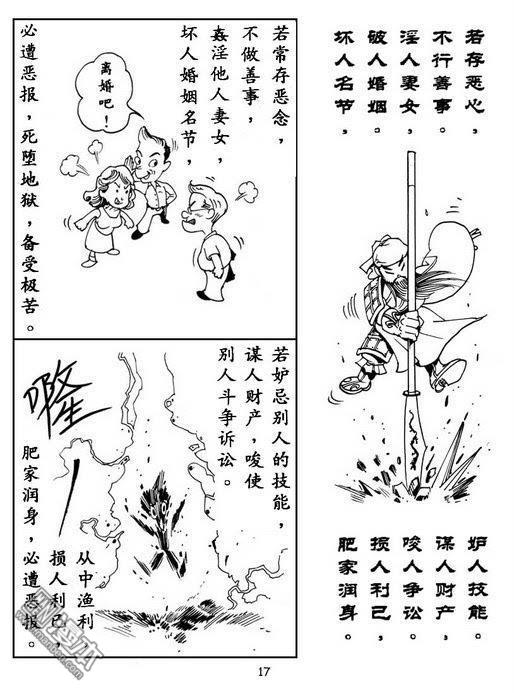 若存恶心，
不行善事。
淫人妻女，
破人婚姻。
坏人名节，
妒人技能
谋人财产，
唆人争讼。
损人利己，
肥家润身。
若常存恶念，
不做善事，
姦淫他人妻女，
坏人婚姻名节，
离婚吧！
必遭恶报，死堕地狱，备受极苦。
若妒忌别人的技能，
谋人财产，唆使
别人斗争诉讼。
从中渔利
损人利己，
肥家润身，必遭恶报。
17